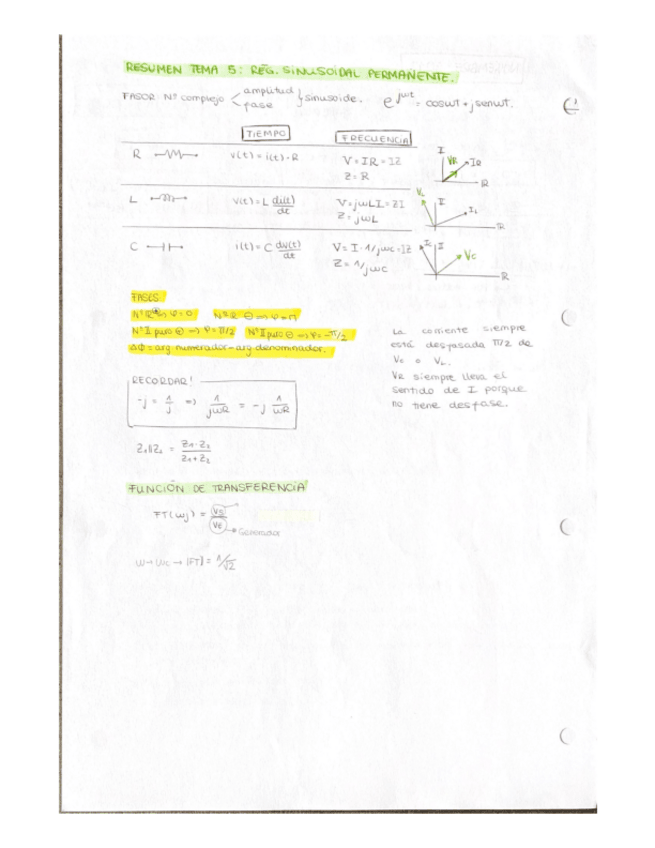 RESUMEN TEMA 5: REG. SINUSOIDAL PERMANENTE.
FASOR Nº complejo < amplitud fase } sinusoide. e^jωt = cosωt + jsenωt.
TIEMPO FRECUENCIA
R v(t) = i(t)·R V = IR = IZ
Z = R
I VR IR R
L v(t) = L di(t)/dt V = jωLI = ZI
Z = jωL
VL I IL R
C i(t) = C dv(t)/dt V = I·1/jωc = IZ
Z = 1/jωc
IC I VC R
FASES
Nº R ⊕ => φ = 0 Nº R ⊖ => φ = π
Nº II puro ⊕ => φ = π/2 Nº II puro ⊖ => φ = -π/2
Δφ = arg. numerador - arg. denominador.
La corriente siempre
está desfasada π/2 de
VC o VL.
VR siempre lleva el
sentido de I porque
no tiene desfase.
RECORDAR!
-j = 1/j => 1/jωR = -j 1/ωR
Z1||Z2 = Z1·Z2/Z1+Z2
FUNCIÓN DE TRANSFERENCIA
FT(ωj) = VS/VE → Generador
ω → ωc → |FT| = 1/√2